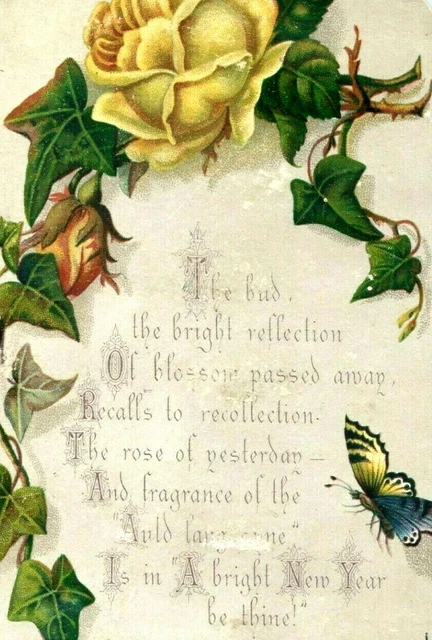 The bud,
the bright reflection
Of blossom passed away,
Recalls to recollection
The rose of yesterday —
And fragrance of the
"Auld lang syne"
Is in "A bright New Year
be thine!"